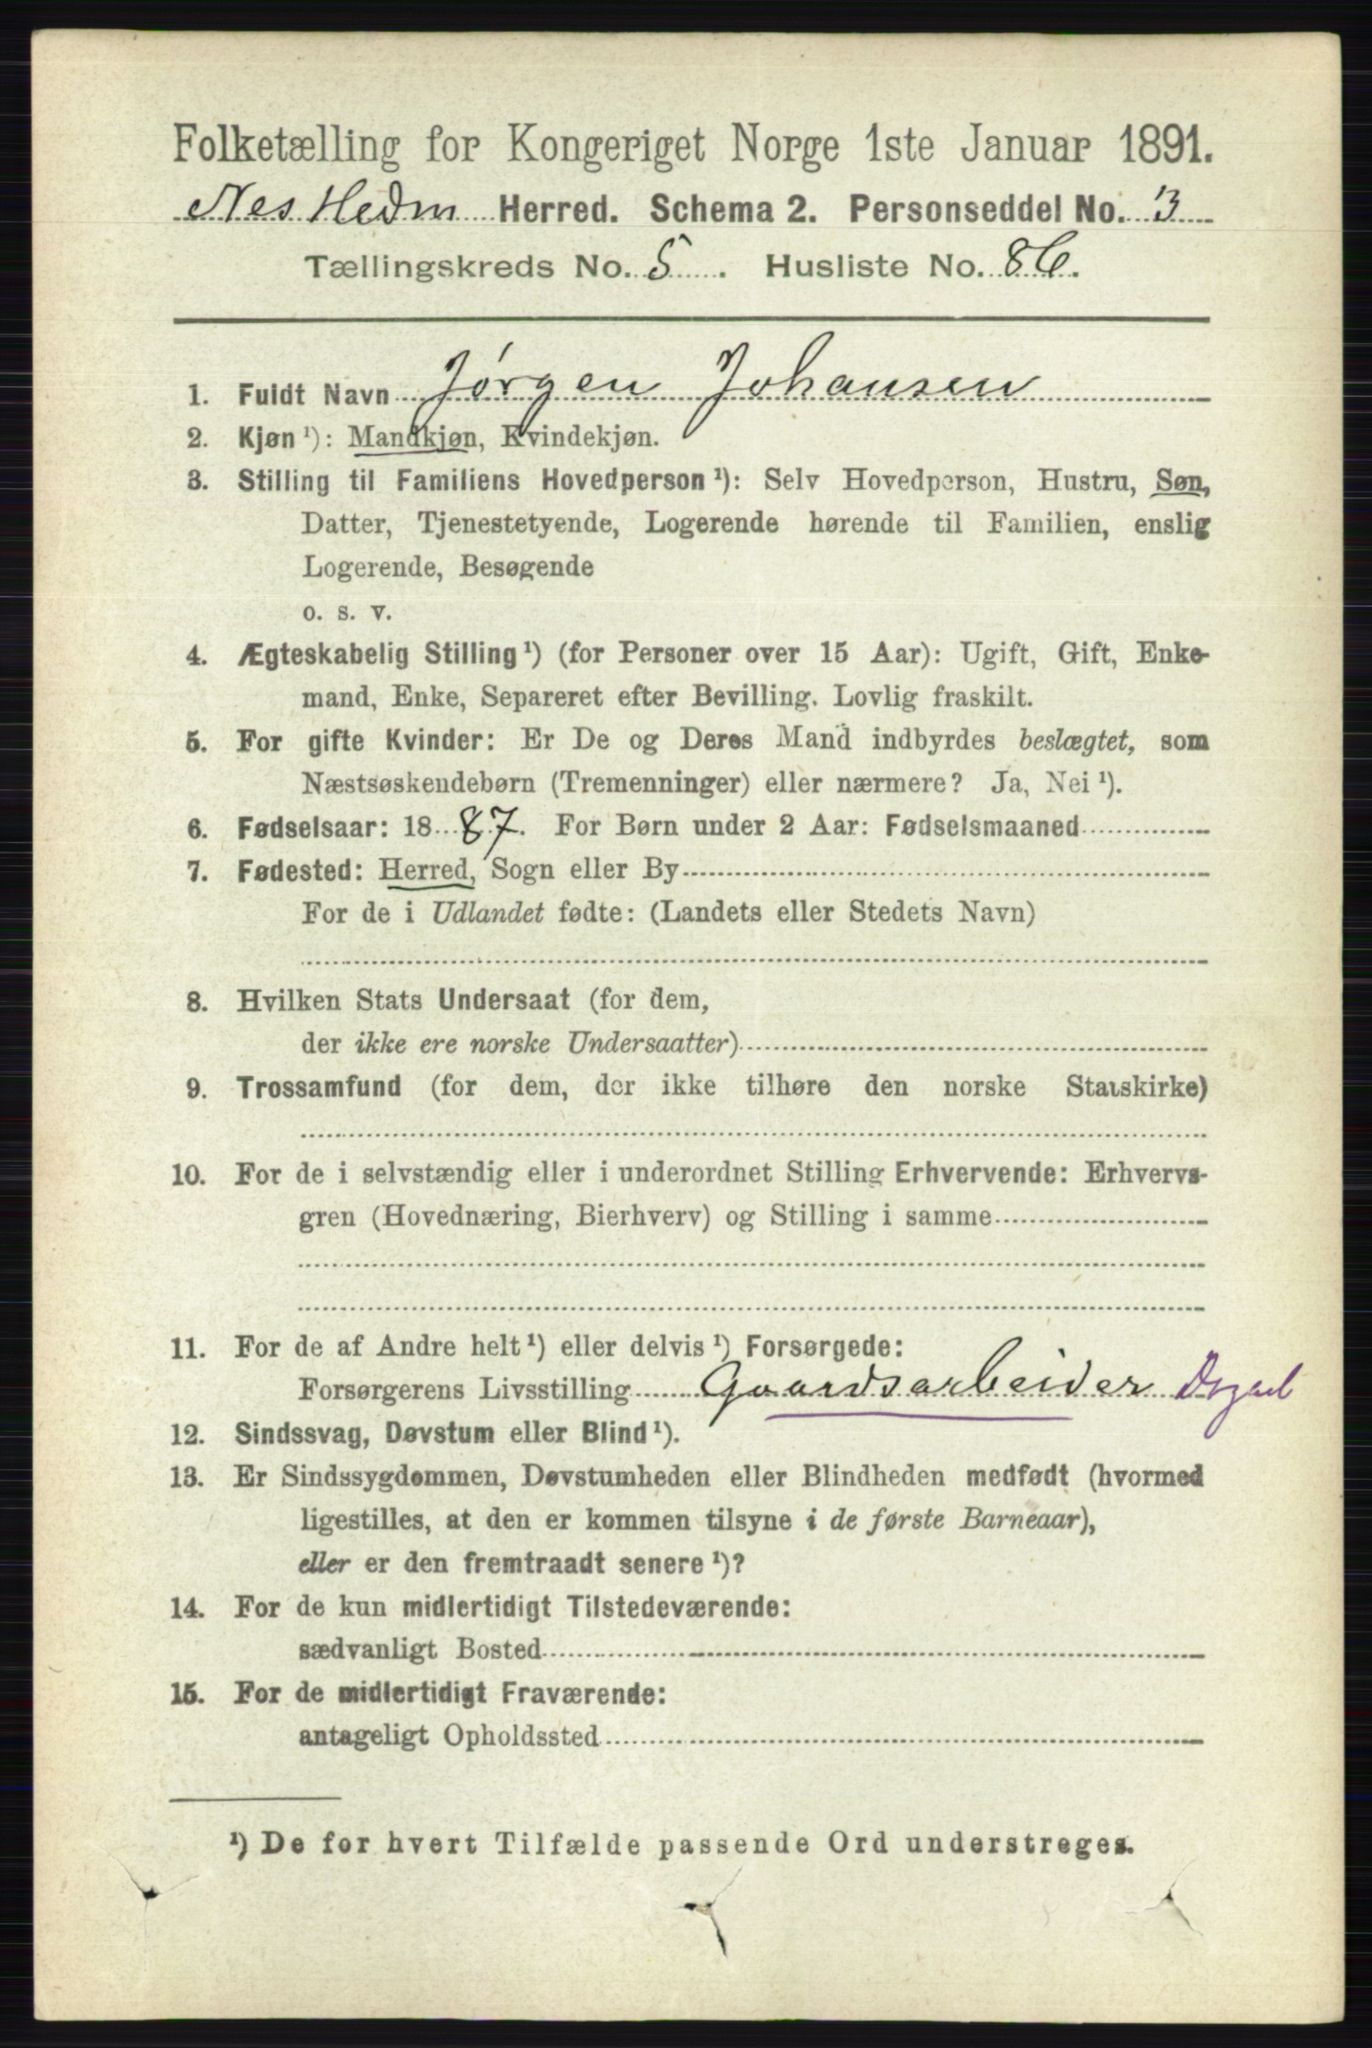 Folketælling for Kongeriget Norge 1ste Januar 1891.
Nes Hedm Herred. Schema 2. Personseddel No. 3
Tællingskreds No. 5. Husliste No. 86.
1. Fuldt Navn Jørgen Johansen
2. Kjøn ¹): Mandkjøn, Kvindekjøn.
3. Stilling til Familiens Hovedperson ¹): Selv Hovedperson, Hustru, Søn,
Datter, Tjenestetyende, Logerende hørende til Familien, enslig
Logerende, Besøgende
o. s. v.
4. Ægteskabelig Stilling ¹) (for Personer over 15 Aar): Ugift, Gift, Enke-
mand, Enke, Separeret efter Bevilling. Lovlig fraskilt.
5. For gifte Kvinder: Er De og Deres Mand indbyrdes beslægtet, som
Næstsøskendebørn (Tremenninger) eller nærmere? Ja, Nei ¹).
6. Fødselsaar: 1887. For Børn under 2 Aar: Fødselsmaaned
7. Fødested: Herred, Sogn eller By
For de i Udlandet fødte: (Landets eller Stedets Navn)
8. Hvilken Stats Undersaat (for dem,
der ikke ere norske Undersaatter)
9. Trossamfund (for dem, der ikke tilhøre den norske Statskirke)
10. For de i selvstændig eller i underordnet Stilling Erhvervende: Erhvervs-
gren (Hovednæring, Bierhverv) og Stilling i samme
11. For de af Andre helt ¹) eller delvis ¹) Forsørgede:
Forsørgerens Livsstilling Gaardsarbeider
12. Sindssvag, Døvstum eller Blind ¹).
13. Er Sindssygdommen, Døvstumheden eller Blindheden medfødt (hvormed
ligestilles, at den er kommen tilsyne i de første Barneaar),
eller er den fremtraadt senere ¹)?
14. For de kun midlertidigt Tilstedeværende:
sædvanligt Bosted
15. For de midlertidigt Fraværende:
antageligt Opholdssted
¹) De for hvert Tilfælde passende Ord understreges.